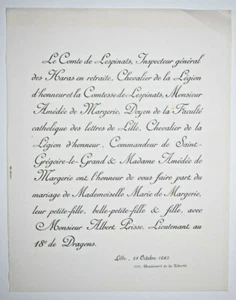 Le Comte de Lespinats, Inspecteur général
des Haras en retraite, Chevalier de la Légion
d'honneur et la Comtesse de Lespinats, Monsieur
Amédée de Margerie, Doyen de la Faculté
catholique des lettres de Lille, Chevalier de la
Légion d'honneur, Commandeur de Saint-
Grégoire-le-Grand & Madame Amédée de
Margerie ont l'honneur de vous faire part du
mariage de Mademoiselle Marie de Margerie,
leur petite-fille, belle-petite-fille & fille, avec
Monsieur Albert Prisse, Lieutenant au
18e de Dragons.
Lille, Octobre
Boulevard de la Liberté